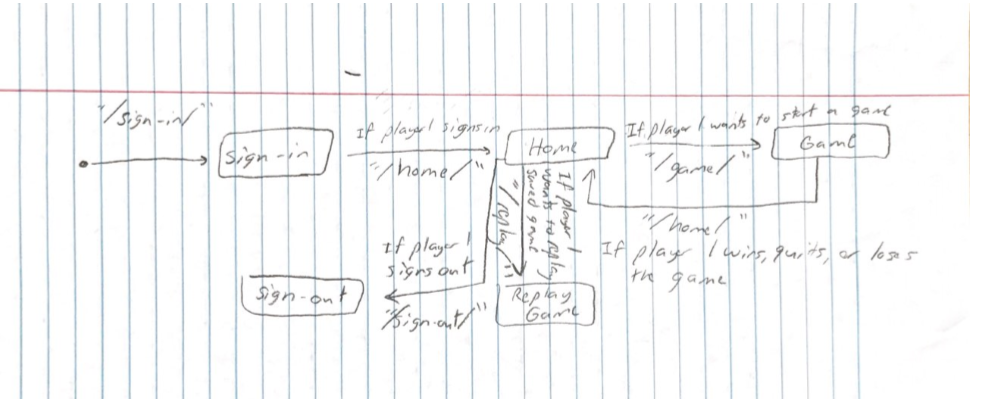 "/sign-in/"
Sign-in
If player 1 signs in
"/home/"
Home
If player 1 wants to start a game
"/game/"
Game
"/home/"
If player 1 wins, quits, or loses
the game
If player 1
wants to replay
saved game
"/replay/"
Replay
Game
If player 1
signs out
"/sign-out/"
Sign-out